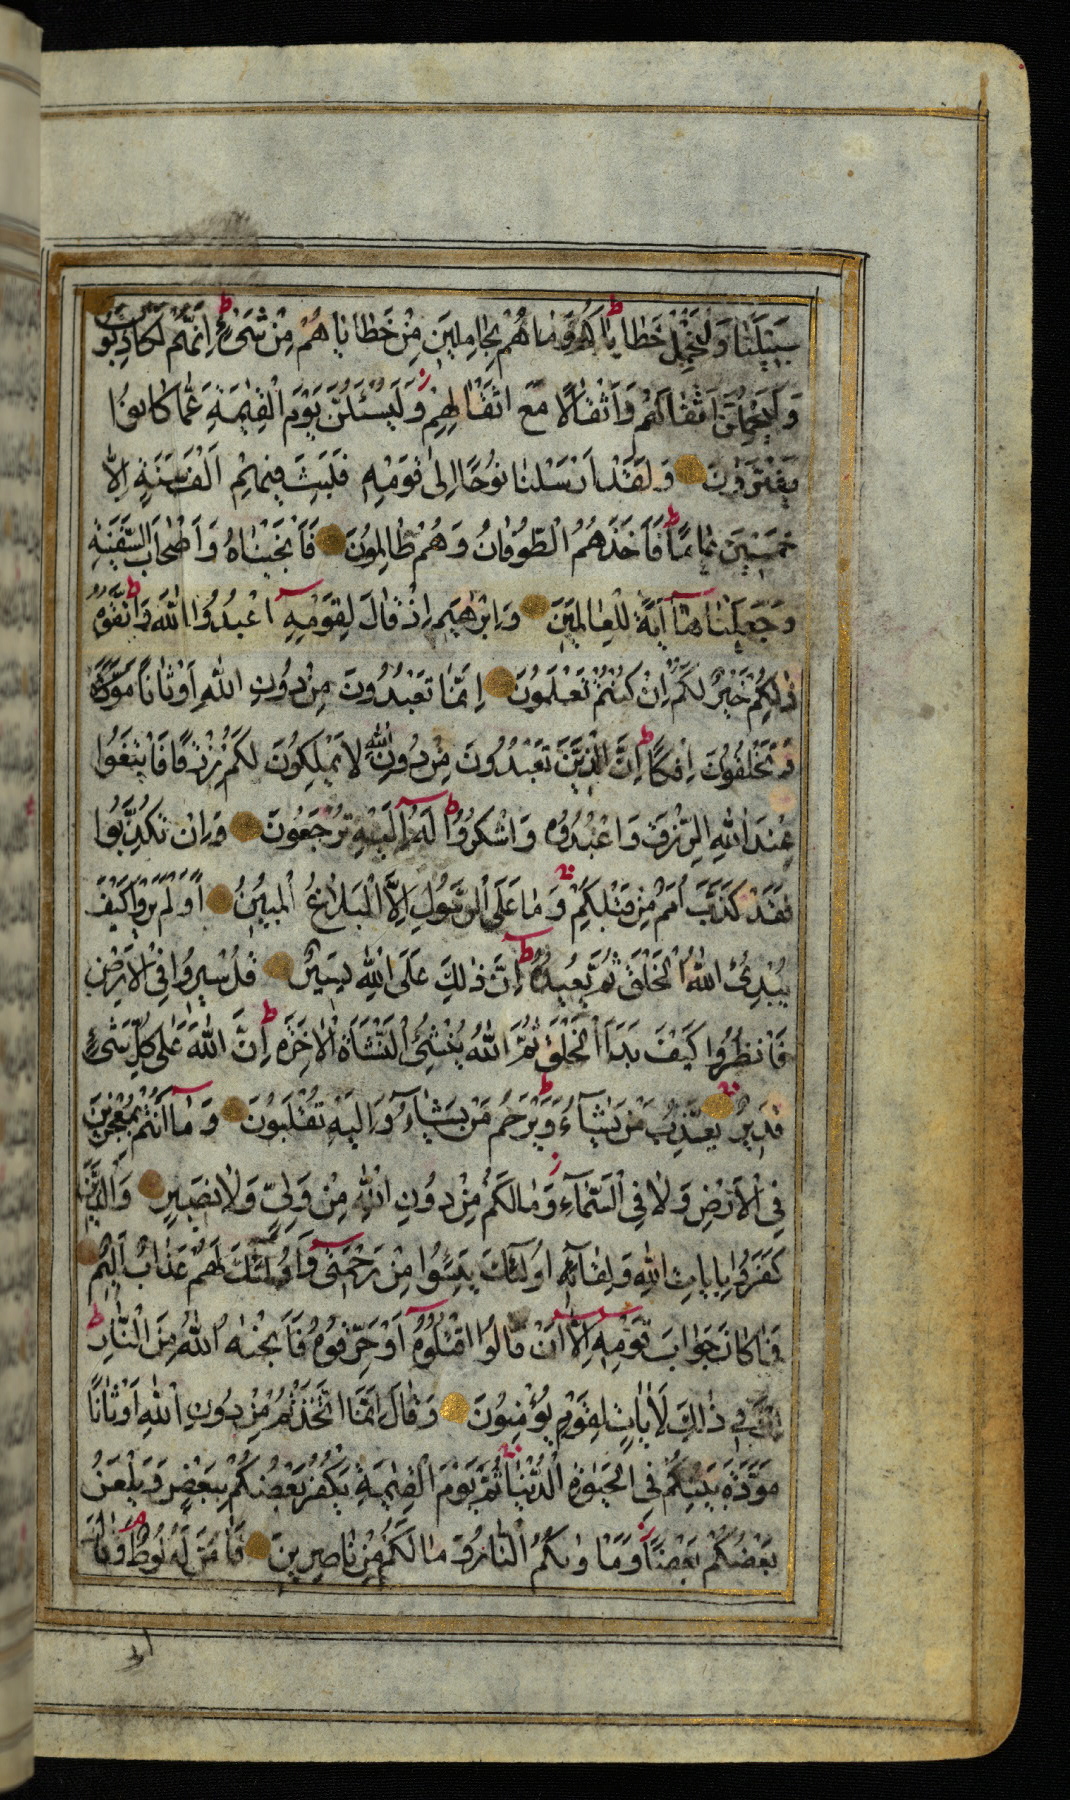 سَبِيلَنَا وَلْنَحْمِلْ خَطَايَاكُمْ وَمَا هُمْ بِحَامِلِينَ مِنْ خَطَايَاهُمْ مِنْ شَيْءٍ ط اِنَّهُمْ لَكَاذِبُونَ
وَلَيَحْمِلُنَّ اَثْقَالَهُمْ وَاَثْقَالًا مَعَ اَثْقَالِهِمْ ز وَلَيُسْئَلُنَّ يَوْمَ الْقِيٰمَةِ عَمَّا كَانُوا
يَفْتَرُونَ وَلَقَدْ اَرْسَلْنَا نُوحًا اِلٰى قَوْمِهِ فَلَبِثَ فِيهِمْ اَلْفَ سَنَةٍ اِلَّا
خَمْسِينَ عَامًا ط فَاَخَذَهُمُ الطُّوفَانُ وَهُمْ ظَالِمُونَ فَاَنْجَيْنَاهُ وَاَصْحَابَ السَّفِينَةِ
وَجَعَلْنَاهَا آيَةً لِلْعَالَمِينَ وَاِبْرٰهِيمَ اِذْ قَالَ لِقَوْمِهِ اعْبُدُوا اللّٰهَ وَاتَّقُوهُ ط
ذٰلِكُمْ خَيْرٌ لَكُمْ اِنْ كُنْتُمْ تَعْلَمُونَ اِنَّمَا تَعْبُدُونَ مِنْ دُونِ اللّٰهِ اَوْثَانًا
وَتَخْلُقُونَ اِفْكًا ط اِنَّ الَّذِينَ تَعْبُدُونَ مِنْ دُونِ اللّٰهِ لَا يَمْلِكُونَ لَكُمْ رِزْقًا فَابْتَغُوا
عِنْدَ اللّٰهِ الرِّزْقَ وَاعْبُدُوهُ وَاشْكُرُوا لَهُ ط اِلَيْهِ تُرْجَعُونَ وَاِنْ تُكَذِّبُوا
فَقَدْ كَذَّبَ اُمَمٌ مِنْ قَبْلِكُمْ ط وَمَا عَلَى الرَّسُولِ اِلَّا الْبَلَاغُ الْمُبِينُ اَوَلَمْ يَرَوْا كَيْفَ
يُبْدِئُ اللّٰهُ الْخَلْقَ ثُمَّ يُعِيدُهُ ط اِنَّ ذٰلِكَ عَلَى اللّٰهِ يَسِيرٌ قُلْ سِيرُوا فِي الْاَرْضِ
فَانْظُرُوا كَيْفَ بَدَاَ الْخَلْقَ ثُمَّ اللّٰهُ يُنْشِئُ النَّشْاَةَ الْاٰخِرَةَ ط اِنَّ اللّٰهَ عَلٰى كُلِّ شَيْءٍ
قَدِيرٌ يُعَذِّبُ مَنْ يَشَآءُ وَيَرْحَمُ مَنْ يَشَآءُ ط وَاِلَيْهِ تُقْلَبُونَ وَمَآ اَنْتُمْ بِمُعْجِزِينَ
فِي الْاَرْضِ وَلَا فِي السَّمَآءِ ز وَمَا لَكُمْ مِنْ دُونِ اللّٰهِ مِنْ وَلِيٍّ وَلَا نَصِيرٍ وَالَّذِينَ
كَفَرُوا بِاٰيَاتِ اللّٰهِ وَلِقَآئِهِ اُولٰٓئِكَ يَئِسُوا مِنْ رَحْمَتِي وَاُولٰٓئِكَ لَهُمْ عَذَابٌ اَلِيمٌ
فَمَا كَانَ جَوَابَ قَوْمِهِ اِلَّآ اَنْ قَالُوا اقْتُلُوهُ اَوْ حَرِّقُوهُ فَاَنْجٰهُ اللّٰهُ مِنَ النَّارِ ط
اِنَّ فِي ذٰلِكَ لَاٰيَاتٍ لِقَوْمٍ يُؤْمِنُونَ وَقَالَ اِنَّمَا اتَّخَذْتُمْ مِنْ دُونِ اللّٰهِ اَوْثَانًا
مَوَدَّةَ بَيْنِكُمْ فِي الْحَيٰوةِ الدُّنْيَا ثُمَّ يَوْمَ الْقِيٰمَةِ يَكْفُرُ بَعْضُكُمْ بِبَعْضٍ وَيَلْعَنُ
بَعْضُكُمْ بَعْضًا ز وَمَاْوٰىكُمُ النَّارُ وَمَا لَكُمْ مِنْ نَاصِرِينَ فَاٰمَنَ لَهُ لُوطٌ وَقَالَ